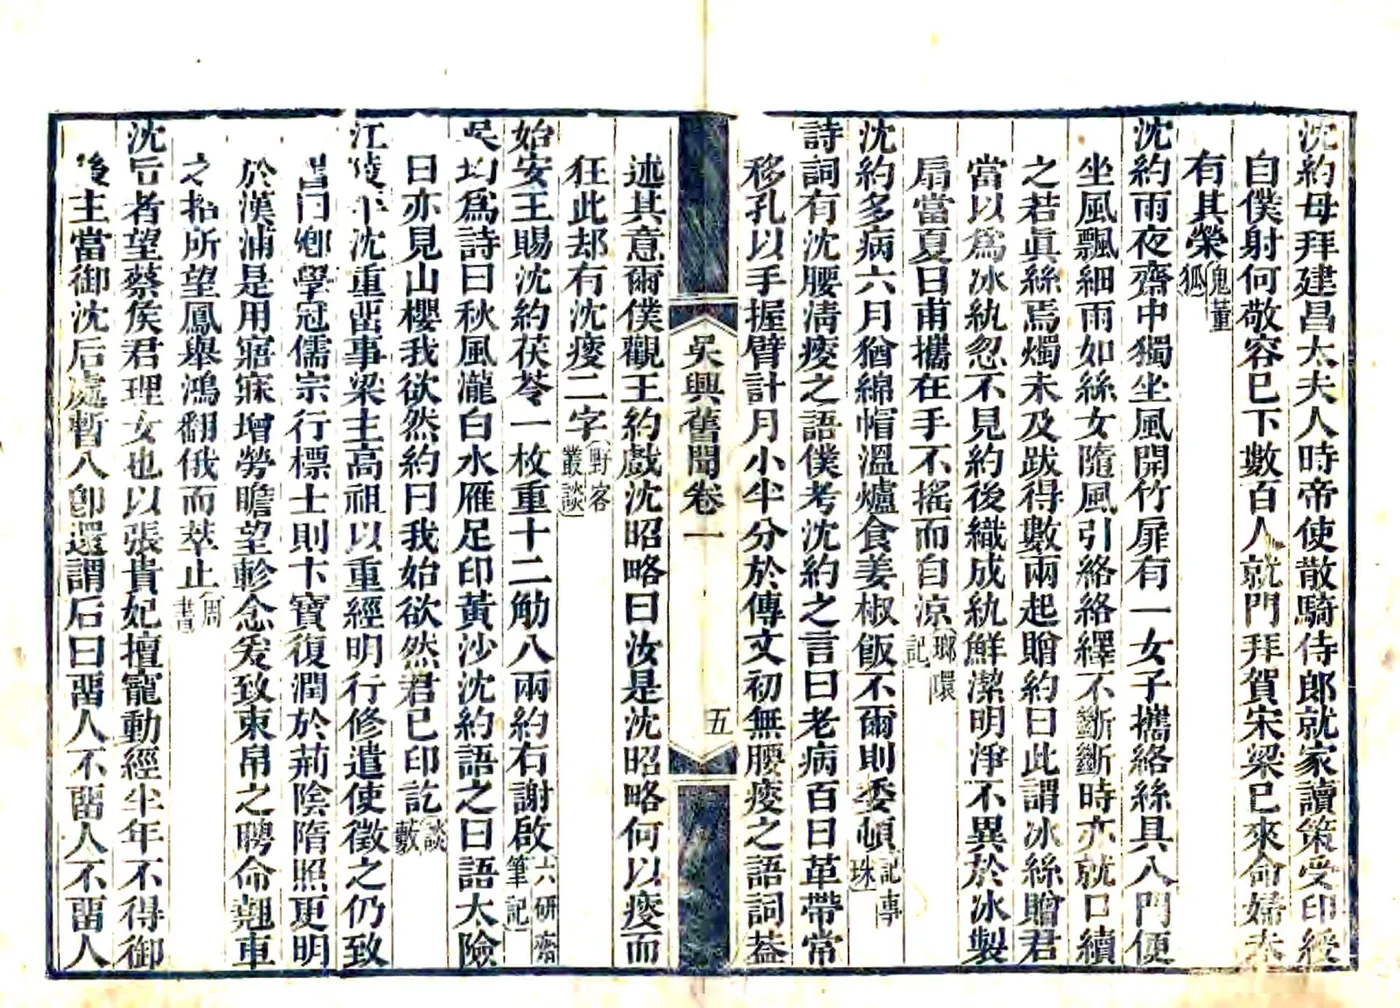 沈約母拜建昌大夫人時帝使散騎侍郎就家讀策受印綬
自僕射何敬容已下數百人就門拜賀宋梁已來命婦未
有其榮鬼董狐
沈約雨夜齋中獨坐風開竹扉有一女子攜絡絲具入門便
坐風飄細雨如絲女隨風引絡絡繹不斷斷時亦就口續
之若眞絲焉燭未及跋得數兩起贈約曰此謂冰絲贈君
當以爲冰紈忽不見約後織成紈鮮潔明淨不異於冰製
扇當夏日甫攜在手不搖而自涼瑯環記
沈約多病六月猶綿帽溫爐食姜椒飯不爾則委頓記事珠
詩詞有沈腰淸瘦之語僕考沈約之言曰老病百日革帶常
移孔以手握臂計月小半分於傳文初無腰瘦之語詞葢
吳興舊聞卷一
五
述其意爾僕觀王約戲沈昭略曰汝是沈昭略何以瘦而
狂此却有沈瘦二字野客叢談
始安王賜沈約茯苓一枚重十二觔八兩約有謝啟六硏齋筆記
吳均爲詩曰秋風瀧白水雁足印黃沙沈約語之曰語太險
曰亦見山櫻我欲然約曰我始欲然君已印訖談藪
江陵平沈重畱事梁主高祖以重經明行修遣使徵之仍致
書曰卿學冠儒宗行標士則卞寶復潤於荊陰隋照更明
於漢浦是用寤寐增勞瞻望軫念爰致束帛之聘命翹車
之招所望鳳舉鴻翻俄而萃止周書
沈后者望蔡侯君理女也以張貴妃擅寵動經半年不得御
後主當御沈后處暫入卽還謂后曰畱人不畱人不畱人